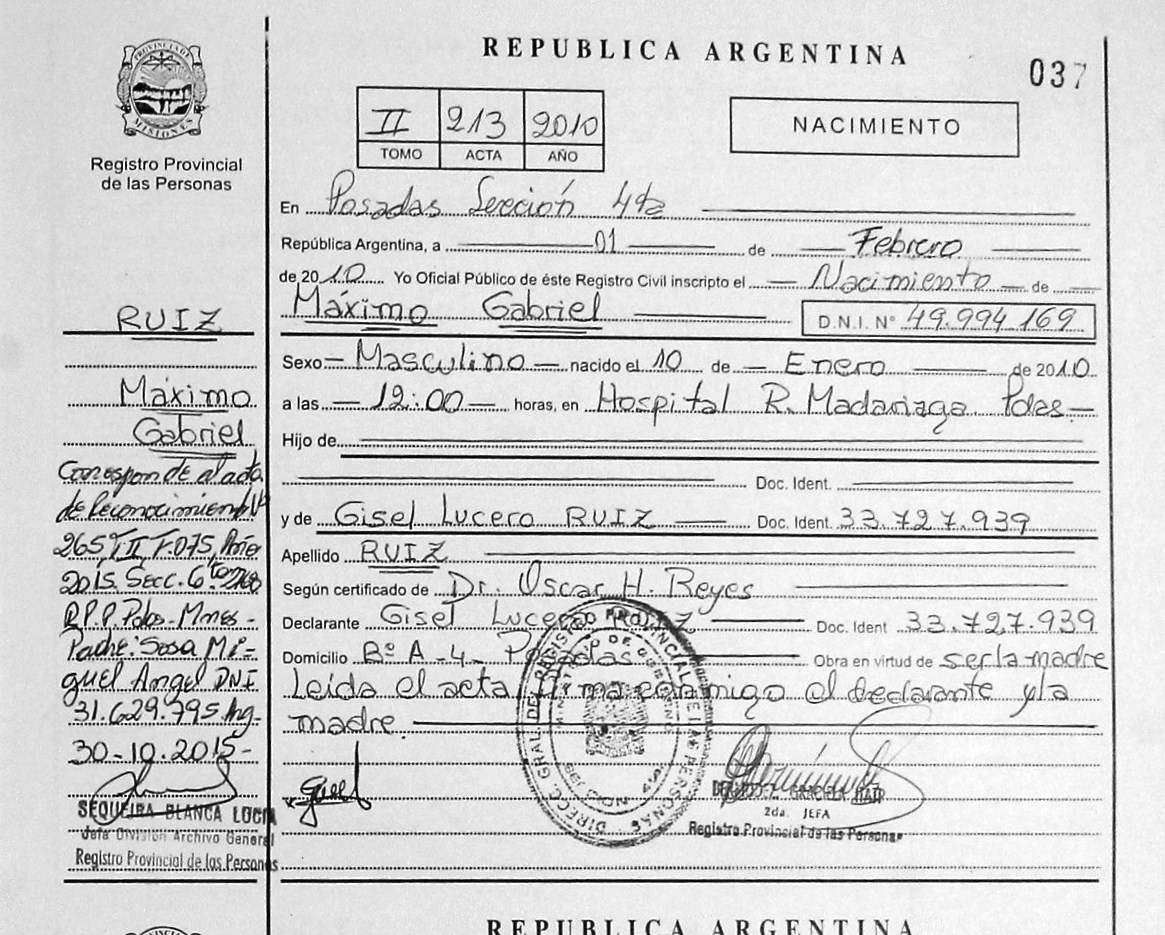 REPUBLICA ARGENTINA
037
PROVINCIA DE
MISIONES
Registro Provincial
de las Personas
II 213 2010
TOMO ACTA AÑO
NACIMIENTO
En Posadas Sección 4ta
República Argentina, a 01 de Febrero
de 2010 Yo Oficial Público de éste Registro Civil inscripto el Nacimiento de
Máximo Gabriel D.N.I. N° 49.994.169
Sexo Masculino nacido el 10 de Enero de 2010
a las 12:00 horas, en Hospital R. Madariaga Pdas
Hijo de
Doc. Ident.
y de Gisel Lucero RUIZ Doc. Ident. 33.727.939
Apellido RUIZ
Según certificado de Dr. Oscar H. Reyes
Declarante Gisel Lucero RUIZ Doc. Ident 33.727.939
Domicilio B° A-4- Posadas Obra en virtud de ser la madre
Leída el acta, firma conmigo el declarante y la
madre.
RUIZ
Máximo
Gabriel
Corresponde al acta
de Reconocimiento N°
265 T II F.075, Año
2015. Secc. 6ta
R.P.P. Pdas-Mnes-
Padre: Sosa Mi=
guel Angel DNI
31.629.795
30-10.2015-
SEQUEIRA BLANCA LUCIA
Jefa División Archivo General
Registro Provincial de las Personas
DIRECC. GRAL. DEL REGISTRO PROVINCIAL DE LAS PERSONAS
MINISTERIO DE GOBIERNO
GRACIELA
2da. JEFA
Registro Provincial de las Personas
REPUBLICA ARGENTINA